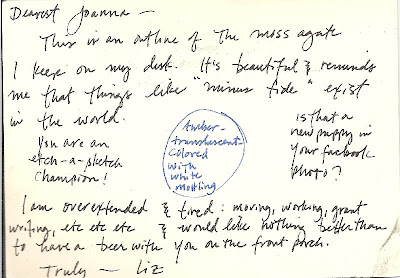 Dearest Joanna —
This is an outline of the moss agate
I keep on my desk. It's beautiful & reminds
me that things like "minus tide" exist
in the world.
You are an
etch-a-sketch
champion!
Amber-
translucent-
colored
with
white
mottling
is that a
new puppy in
your facbook
photo?
I am overextended & tired: moving, working, grant
writing, etc etc etc & would like nothing better than
to have a beer with you on the front porch.
Truly — Liz